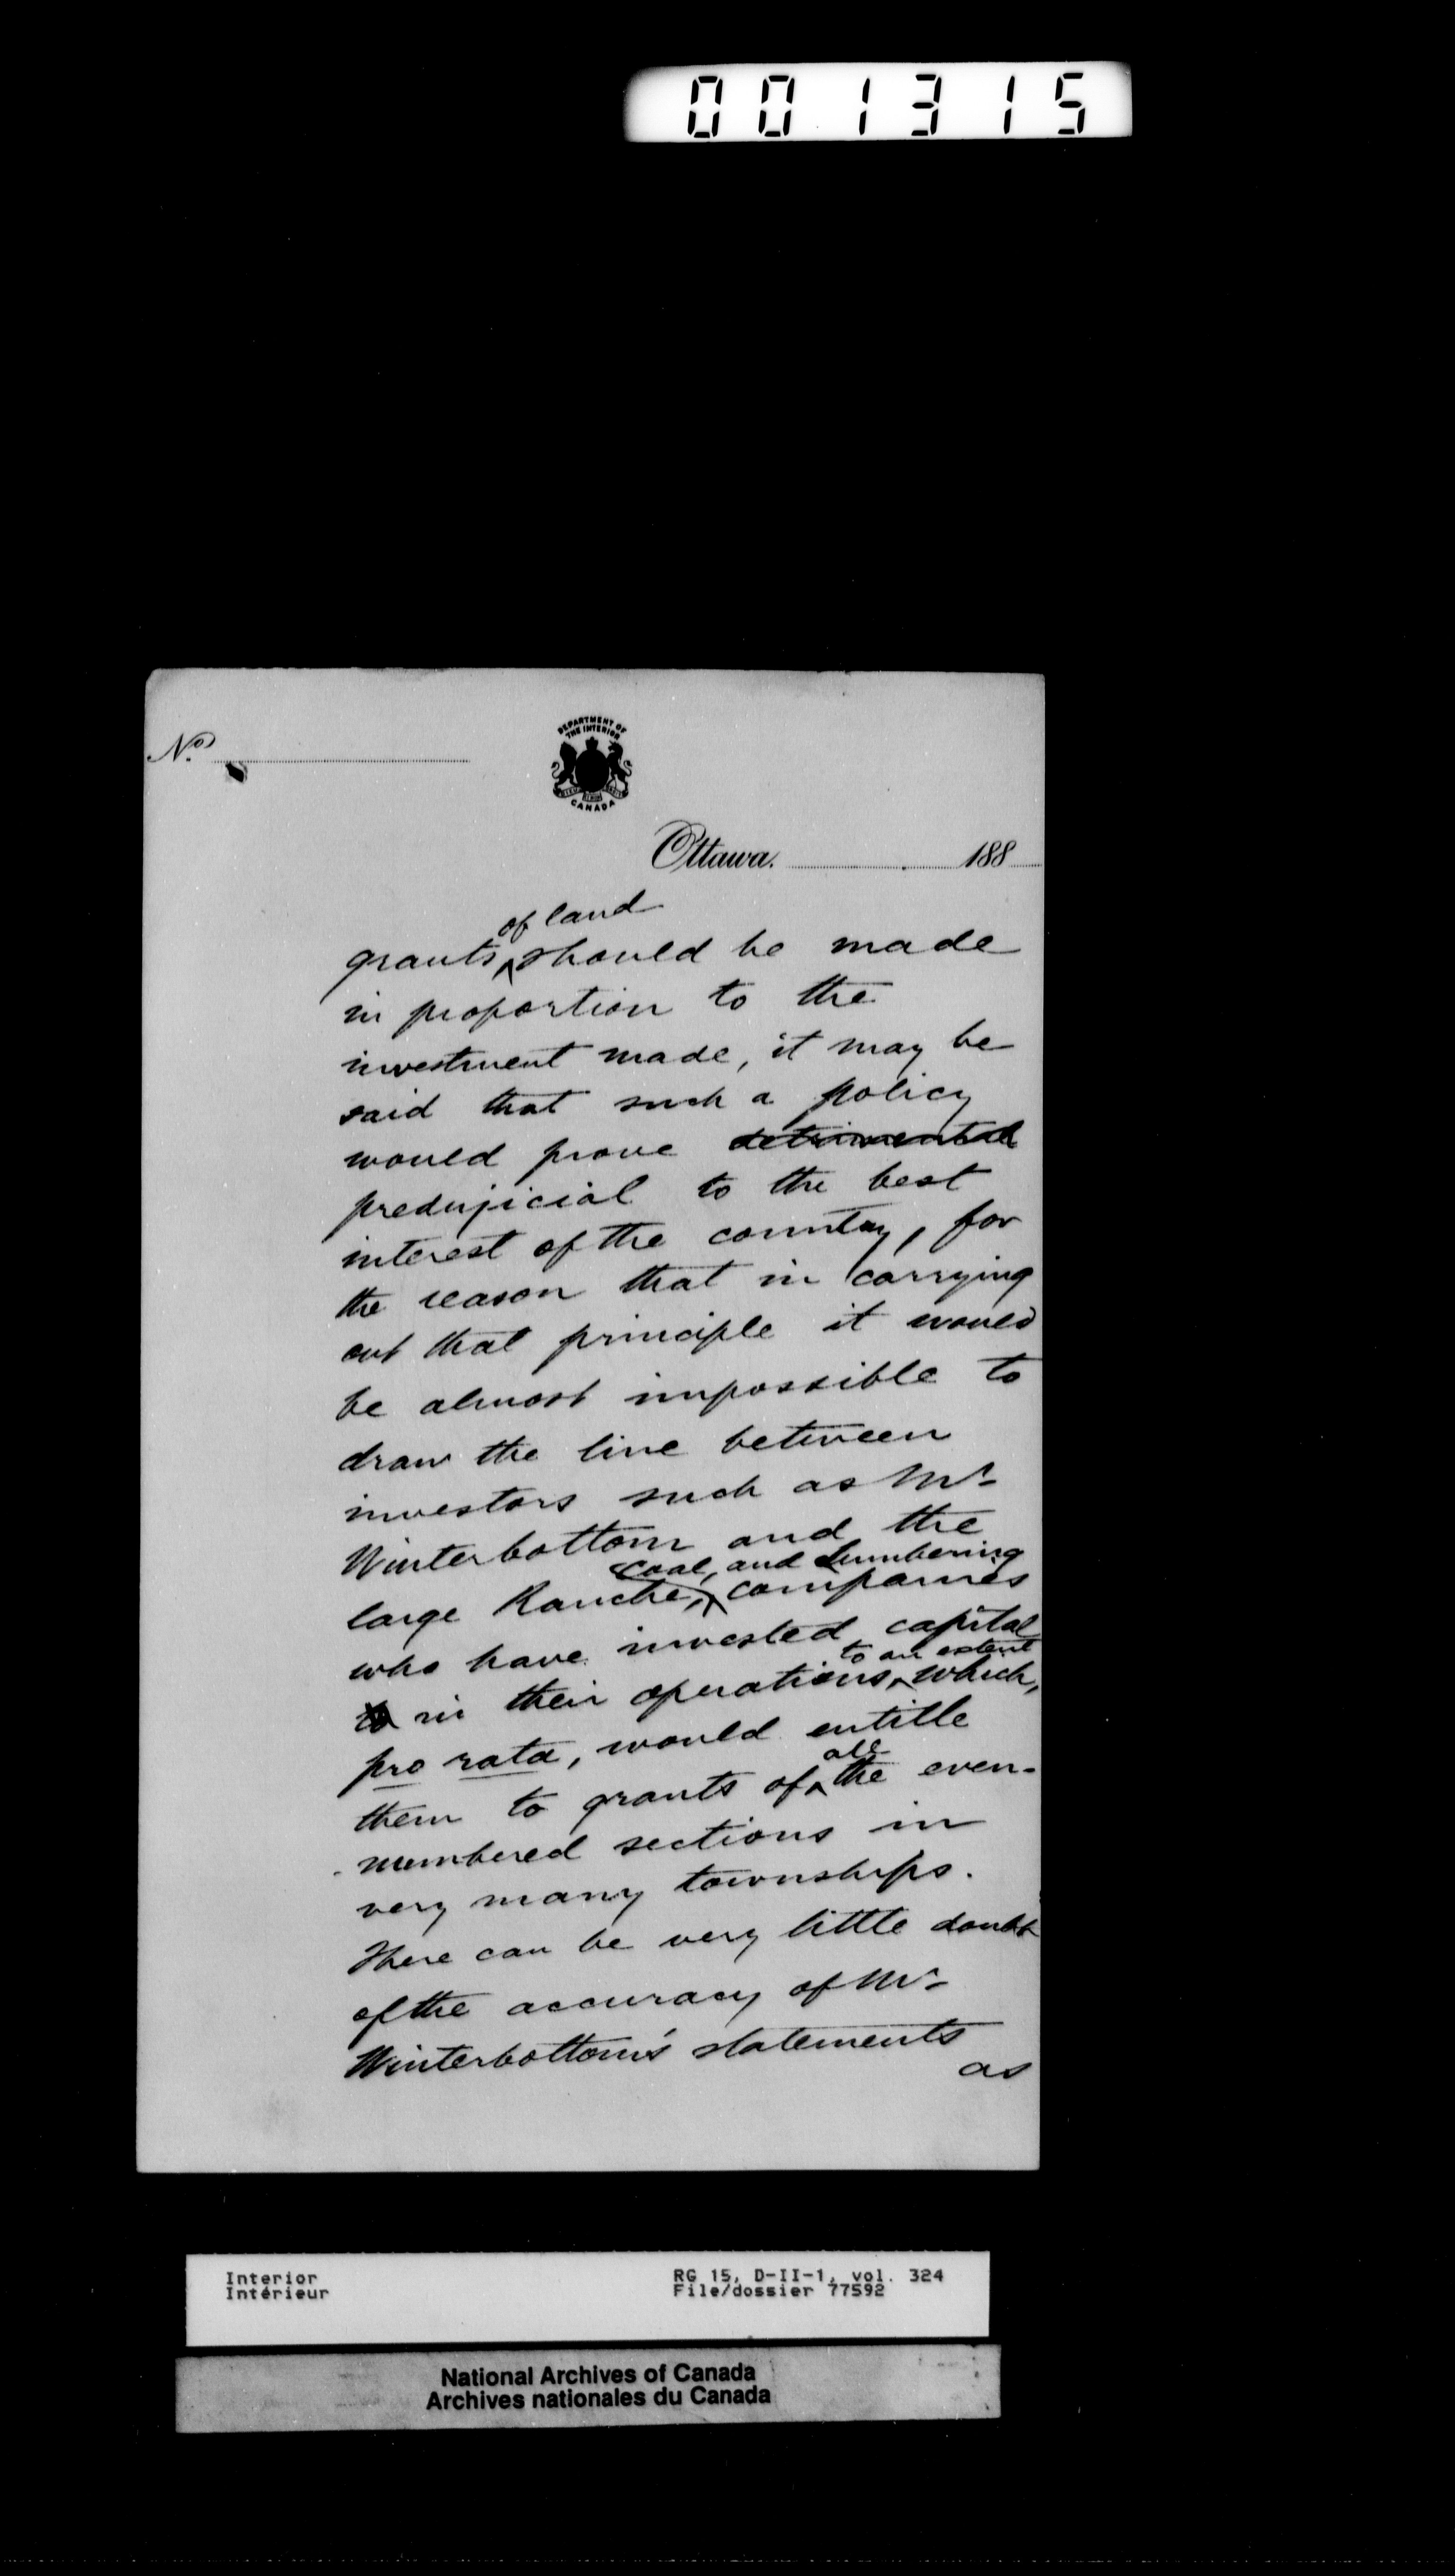 001315
No.
DEPARTMENT OF
THE INTERIOR
CANADA
Ottawa. 188
of land
grants ^ should be made
in proportion to the
investment made, it may be
said that such a policy
would prove detrimental
predujicial to the best
interest of the country, for
the reason that in carrying
out that principle it would
be almost impossible to
draw the line between
investors such as Mr
Winterbottom and the
coal, and lumbering
large Ranche, ^ companies
who have invested capital
to an extent
in their operations ^ which,
pro rata, would entitle
all
them to grants of ^ the even-
-numbered sections in
very many townships.
There can be very little doubt
of the accuracy of Mr
Winterbottom's statements
as
Interior
Intérieur
RG 15, D-II-1, vol. 324
File/dossier 77592
National Archives of Canada
Archives nationales du Canada